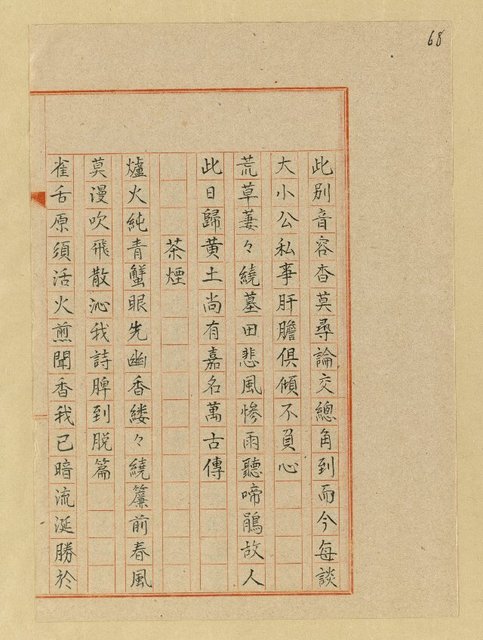 68
此別音容杳莫尋論交總角到而今每談
大小公私事肝膽俱傾不負心
荒草萋々繞墓田悲風慘雨聽啼鵑故人
此日歸黄土尚有嘉名萬古傳
茶煙
爐火純青蟹眼先幽香縷々繞簾前春風
莫漫吹飛散沁我詩脾到脱篇
雀舌原須活火煎聞香我已暗流涎勝於